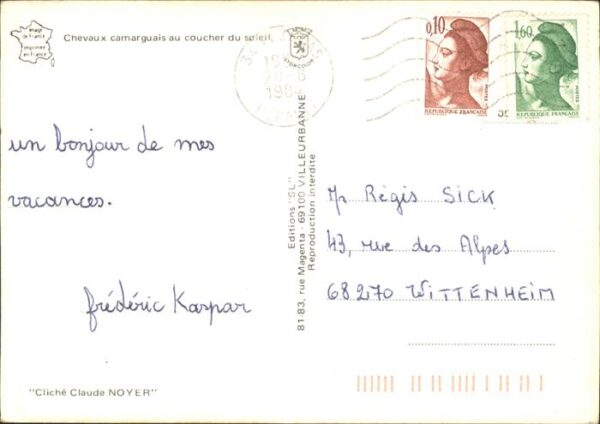 Image de France
Imprimée en France
Chevaux camarguais au coucher du soleil
0,10
1,60
POSTES
POSTES
REPUBLIQUE FRANÇAISE
REPUBLIQUE FRANÇAISE
34
1984
un bonjour de mes
vacances.
frédéric Kaspar
Editions "SL"
81-83, rue Magenta - 69100 VILLEURBANNE
Reproduction interdite
Mr Régis SICK
43, rue des Alpes
68270 WITTENHEIM
"Cliché Claude NOYER"